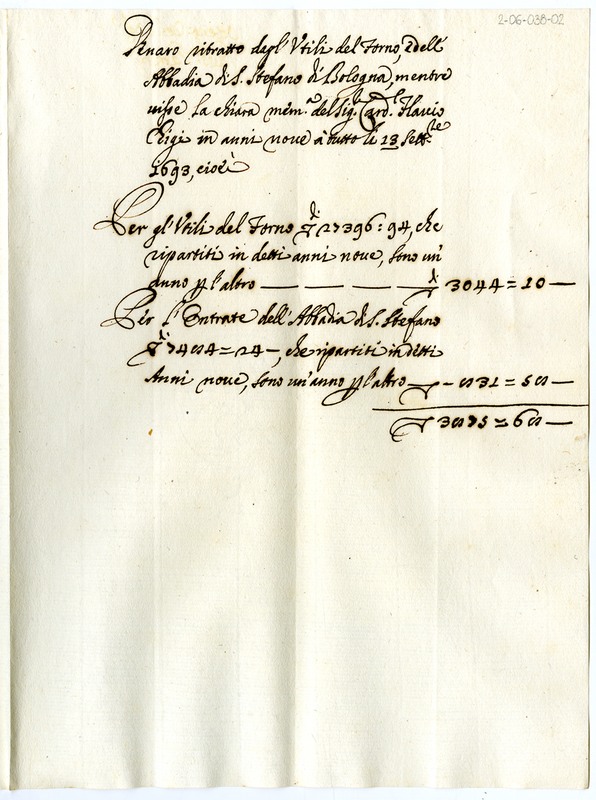 2-06-038-02
Denaro ritratto dagl' Utili del Forno, e dell'
Abbadia di S. Stefano di Bologna, mentre
visse la chiara mem.a del Sig.r Card.l Flavio
Chigi in anni nove a tutto li 13 Sett.re
1693, cioè
Per gl' Utili del Forno 27396:94, che
ripartiti in detti anni nove, sono un'
anno p l'altro — — — — 3044=10—
Per l'Entrate dell'Abbadia di S. Stefano
7484=24—, che ripartiti in detti
Anni nove, sono un'anno p l'altro - 831=58—
3875=68—